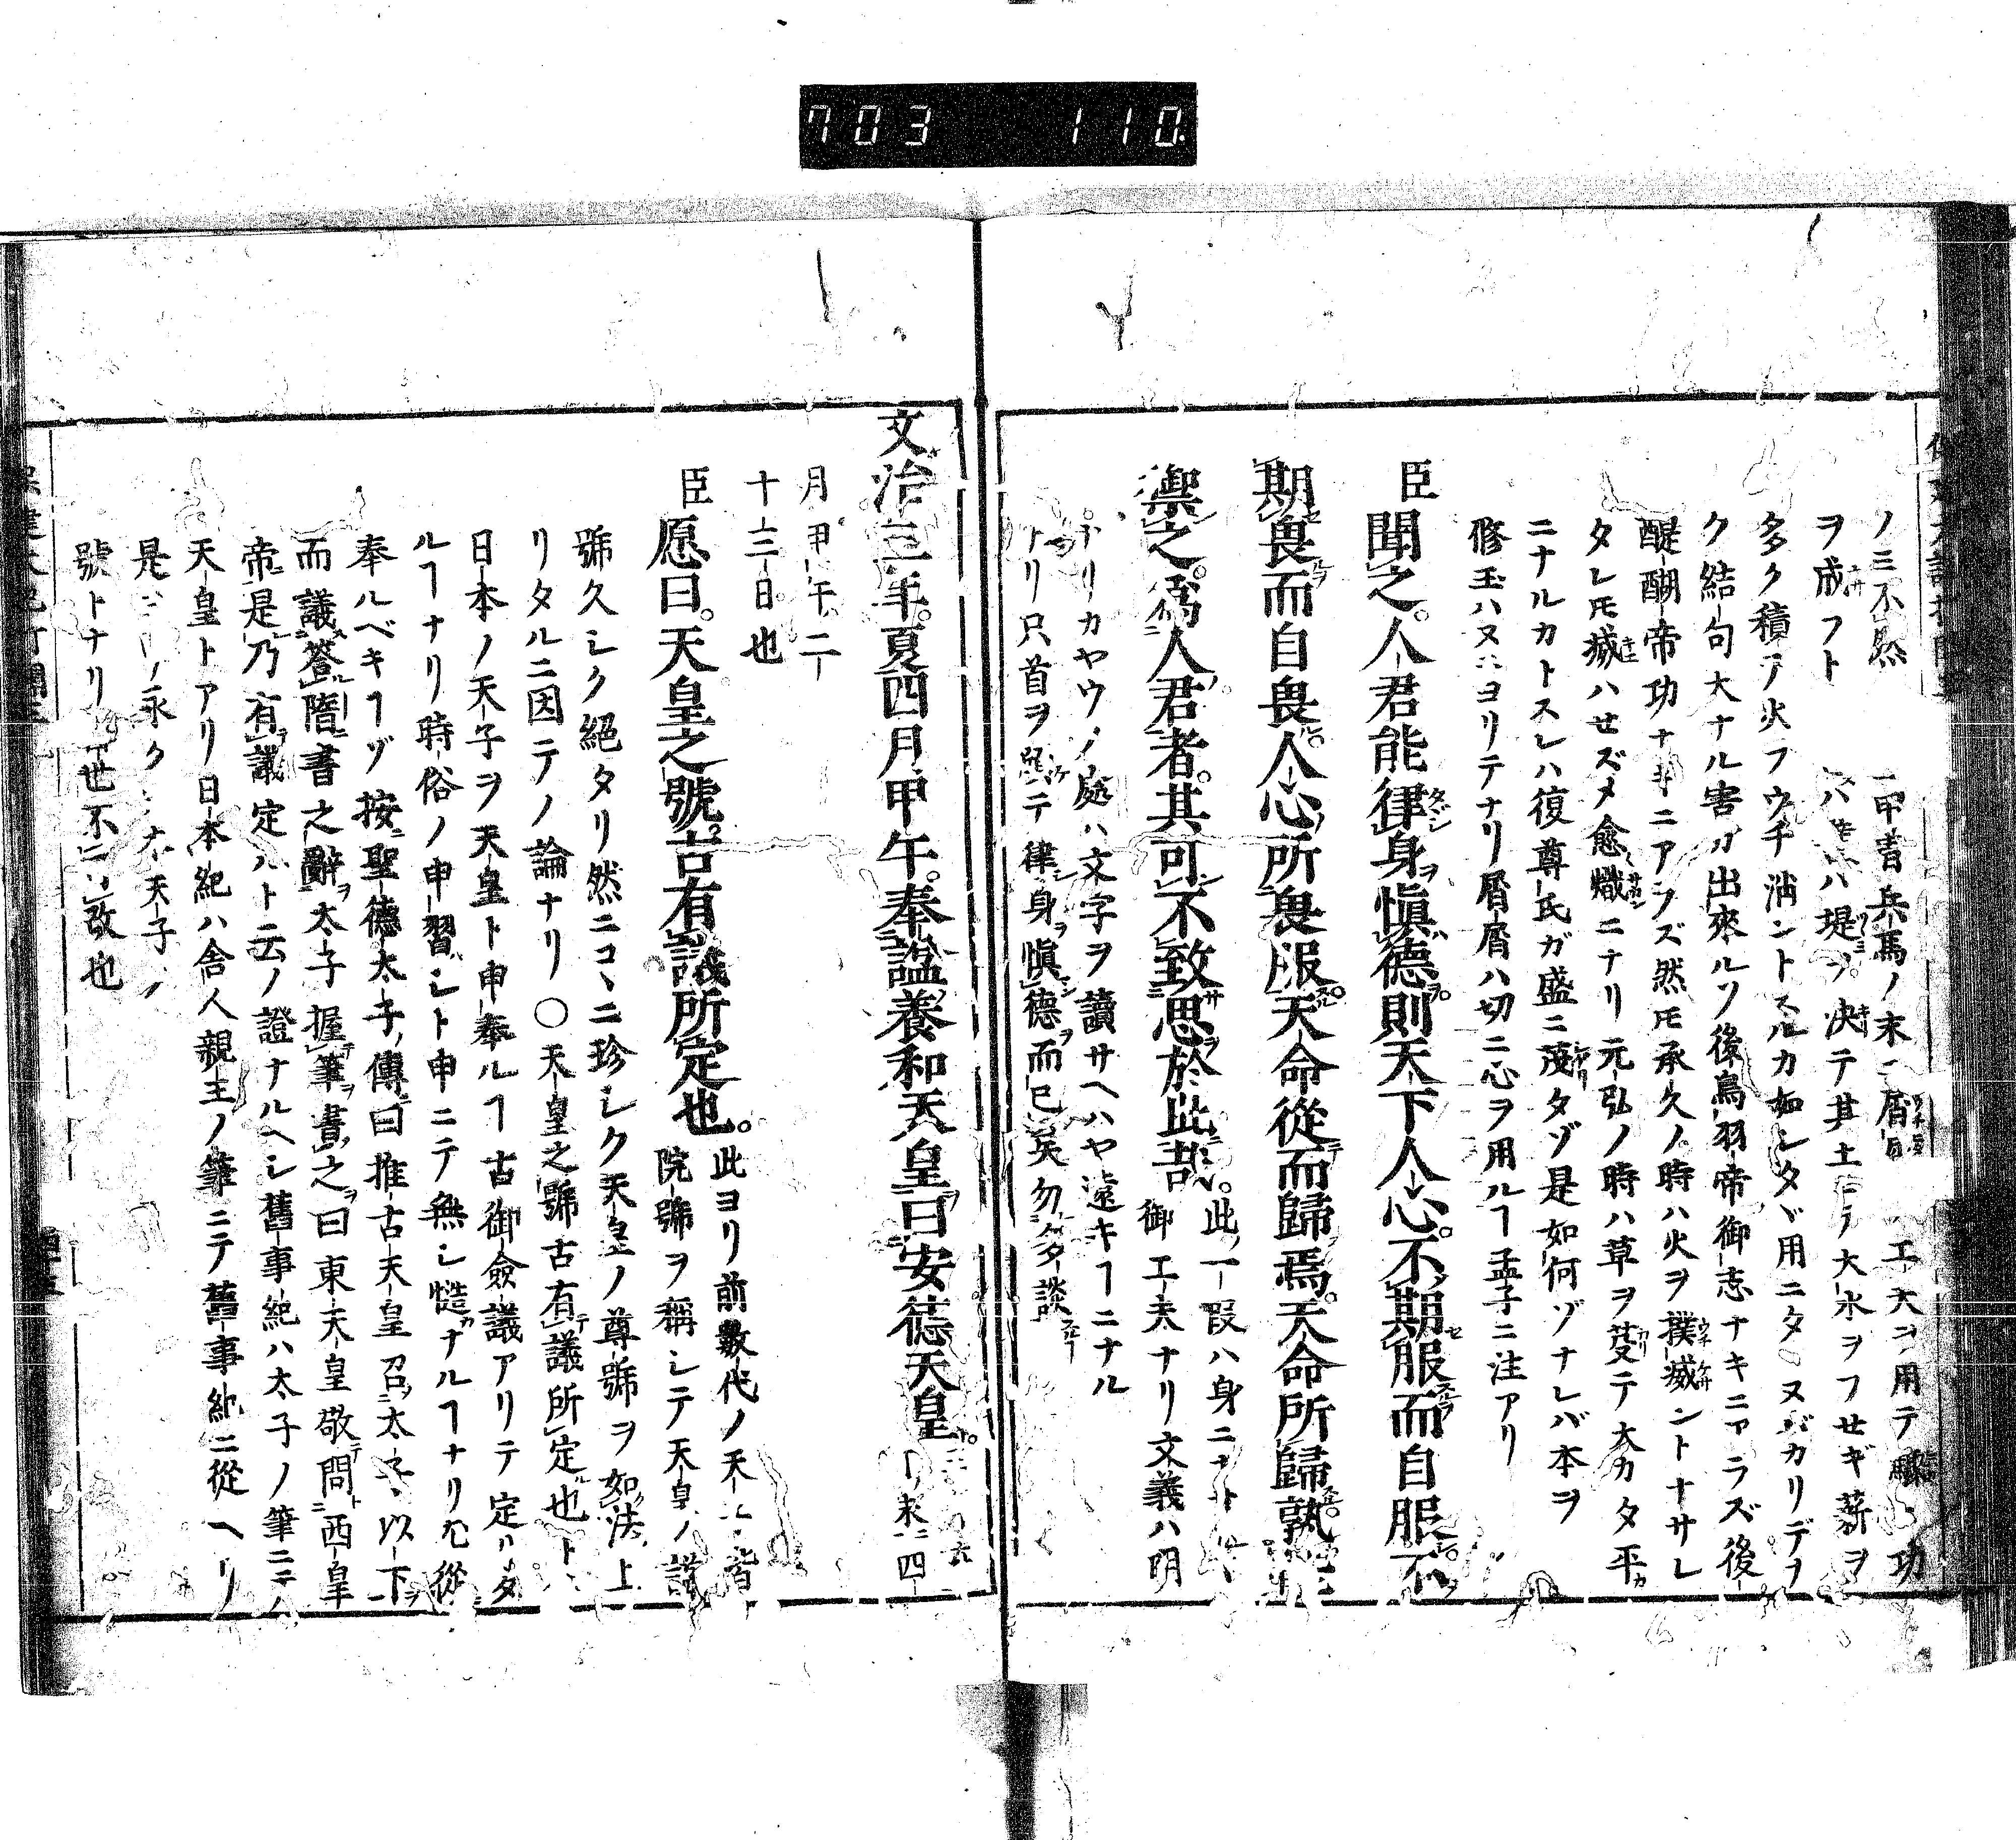 703 110
ノミ不然 甲冑兵馬ノ末ニ屑屑 工夫ヲ用テ 功
ヲ成フト ハ堤ヲ決テ其土ニテ大水ヲフセギ薪ヲ
多ク積テ火フウチ消ントスルカ如シタヾ用ニタヌバカリデヲ
ク結句大ナル害ガ出來ルソ後鳥羽帝御志ナキニアラズ後
醍醐帝功ナキニアラズ然モ承久ノ時ハ火ヲ撲滅ントナサレ
タレ𪜈滅ハせズメ愈熾ニナリ元弘ノ時ハ草ヲ芟テ大カタ平
ニナルカトスレハ復尊氏ガ盛ニ茂タゾ是如何ゾナレバ本ヲ
修玉ハヌニヨリテナリ屑屑ハ切ニ心ヲ用ルヿ孟子ニ注アリ
臣聞之。人君能律身愼德則天下人心。不期服而自服。不
期畏而自畏。人心所畏服。天命從而歸焉。天命所歸。孰
禦之。爲人君者。其可不致思於此哉。此一段ハ身ニナト
御工夫ナリ文義ハ明
ナリカヤウノ處ハ文字ヲ讀サヘハヤ遠キヿニナル
ナリ只首ヲ テ律身愼德而已矣勿多談
文治三年。夏四月甲午。奉謚養和天皇曰安德天皇。 末 四
月甲午二
十三日也
臣愿曰。天皇之號。古有議所定也。此ヨリ前數代ノ天 皆
院號ヲ稱シテ天皇ノ謚
號久シク絕タリ然ニコヽニ珍シク天皇ノ尊號ヲ如法上
リタルニ因テノ論ナリ〇天皇之號古有議所定也ト
日本ノ天子ヲ天皇ト申奉ルヿ古御僉議アリテ定ハタ
ルヿナリ時俗ノ申習シト申ニテ無シ慥ナルヿナリ尤從
奉ルベキヿゾ按聖德太子傳曰推古天皇召太子以下
而議答隋書之辭太子握筆書之曰東天皇敬問西皇
帝是乃有議定ハト云ノ證ナルヘシ舊事紀ハ太子ノ筆ニテ
天皇トアリ日本紀ハ舍人親王ノ筆ニテ舊事紀ニ從ヘリ
是 ノ永ク 天子ノ
號トナリ 世不 改也